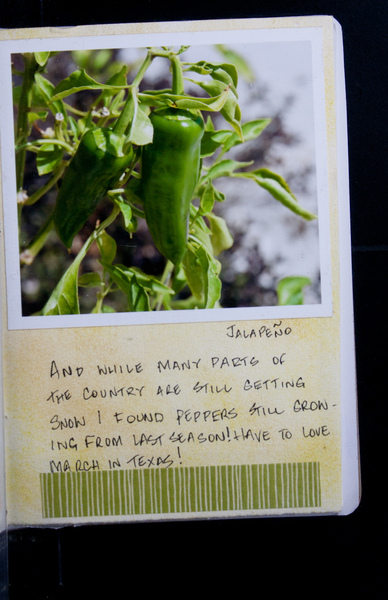 JALAPEÑO
AND WHILE MANY PARTS OF
THE COUNTRY ARE STILL GETTING
SNOW I FOUND PEPPERS STILL GROW-
ING FROM LAST SEASON! HAVE TO LOVE
MARCH IN TEXAS!